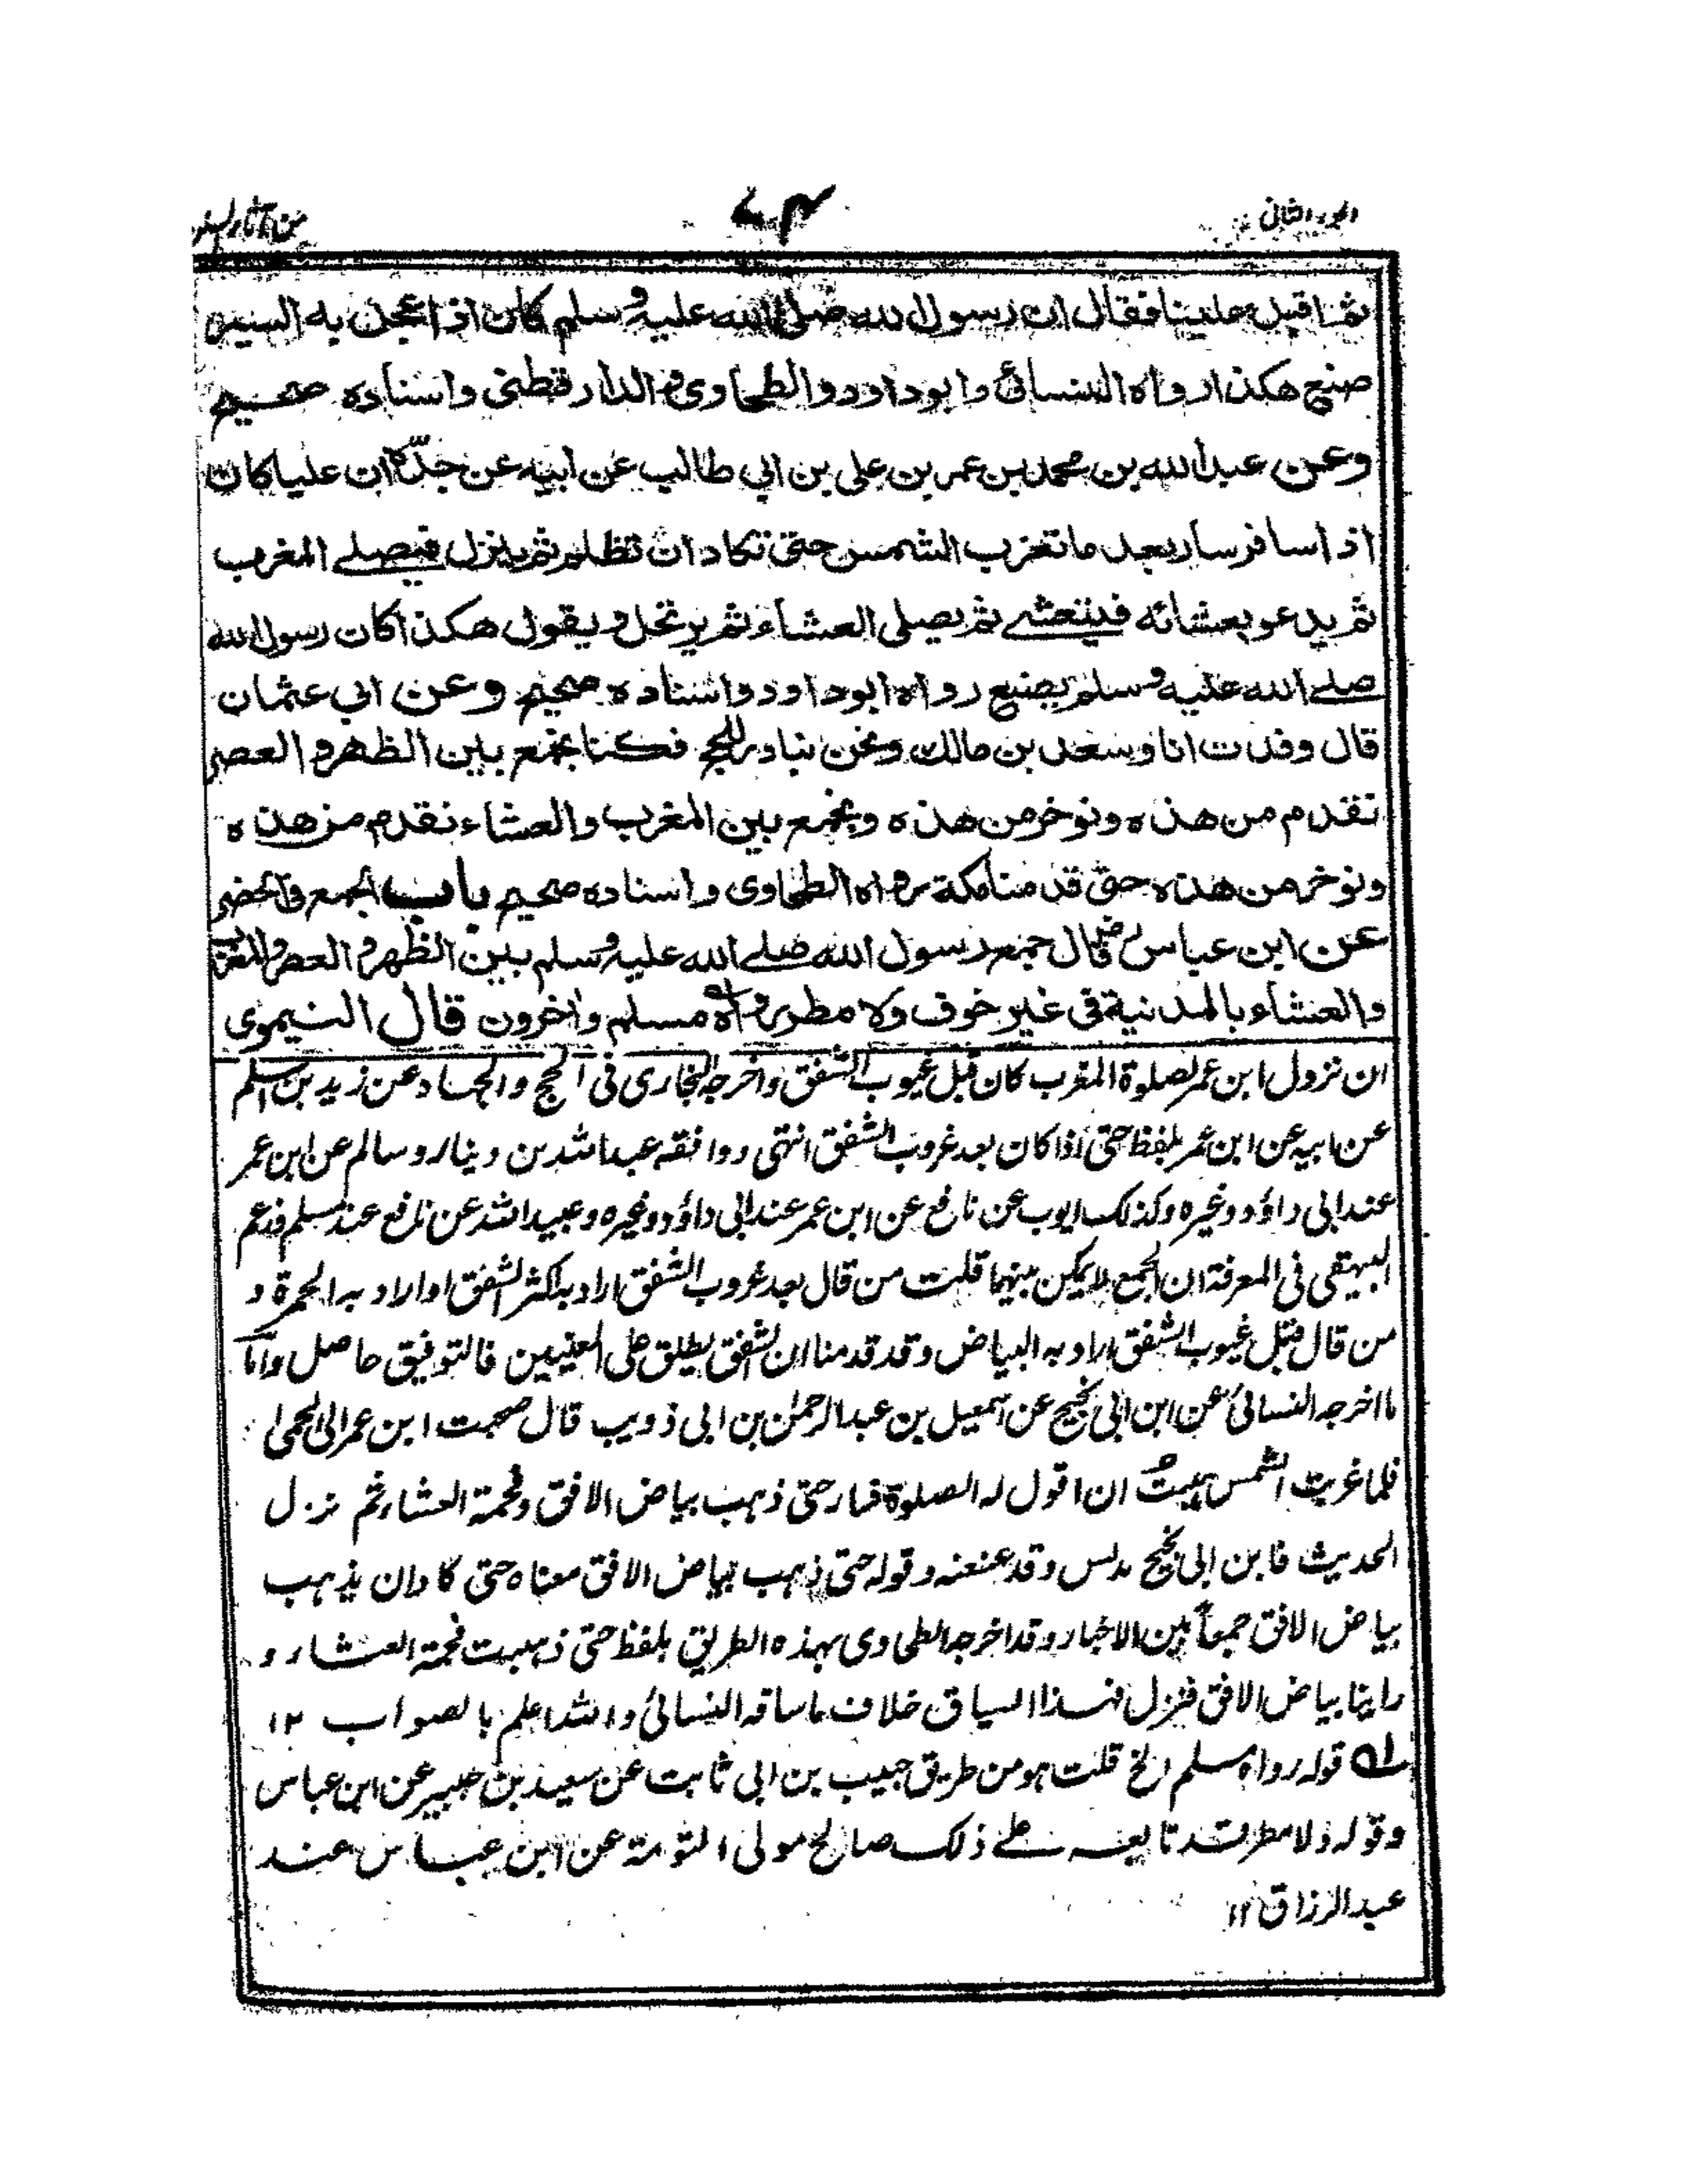 الجزء الثانی
من آثار السنن
ثم اقبل علينا فقال ان رسول الله صلى الله عليه وسلم كان اذا عجل به السير
صنع هكذا رواه النسائى وابوداود والطحاوى والدارقطنى واسناده صحيح
وعن عبد الله بن محمد بن عمر بن على بن ابى طالب عن ابيه عن جده ان عليا كان
اذا سافر سار بعد ما تغرب الشمس حتى تكاد ان تظلم ثم ينزل فيصلے المغرب
ثم يدعو بعشائه فيتعشے ثم يصلى العشاء ثم يرتحل ويقول هكذا كان رسول الله
صلے الله عليه وسلم يصنع رواه ابوداود واسناده صحيح وعن ابى عثمان
قال وفدت انا وسعد بن مالك ونحن نبادر للحج فكنا نجمع بين الظهر والعصر
نقدم من هذه ونوخر من هذه ونجمع بين المغرب والعشاء نقدم من هذه
ونوخر من هذه حتى قدمنا مكة رواه الطحاوى واسناده صحيح باب الجمع فى الحضر
عن ابن عباس رض قال جمع رسول الله صلے الله عليه وسلم بين الظهر والعصر والمغرب
والعشاء بالمدينة فى غير خوف ولا مطر رواه مسلم واخرون قال النيموى
ان نزول ابن عمر لصلوة المغرب كان قبل غيوب الشفق واخرجه البخارى فى الحج والجهاد عن زيد بن اسلم
عن ابيه عن ابن عمر بلفظ حتى اذا كان بعد غروب الشفق انتهى ووافقه عبد الله بن دينار وسالم عن ابن عمر
عند ابى داؤد وغيره وكذلك ايوب عن نافع عن ابن عمر عند ابى داؤد وغيره وعبيد الله عن نافع عند مسلم فزعم
البيهقى فى المعرفة ان الجمع لا يمكن بينهما قلت من قال بعد غروب الشفق اراد به اكثر الشفق او اراد به الحمرة و
من قال قبل غيوب الشفق اراد به البياض وقد قدمنا ان الشفق يطلق على المعنيين فالتوفيق حاصل واما
ما اخرجه النسائى عن ابن ابى نجيح عن اسمعيل بن عبد الرحمٰن بن ابى ذويب قال صحبت ابن عمر الى الحمىٰ
فلما غربت الشمس هبت ان اقول له الصلوة فسار حتى ذهب بياض الافق وفحمة العشاء ثم نزل
الحديث فابن ابى نجيح مدلس وقد عنعنه وقوله حتى ذهب بياض الافق معناه حتى كاد ان يذهب
بياض الافق جمعاً بين الاخبار وقد اخرجه الطحاوى بهذه الطريق بلفظ حتى ذهبت فحمة العشاء و
راينا بياض الافق فنزل فهذا السياق خلاف ما ساقه النسائى والله اعلم بالصواب ١٢
قوله رواه مسلم الخ قلت هو من طريق حبيب بن ابى ثابت عن سعيد بن جبير عن ابن عباس
وقوله ولا مطر قد تابعه علے ذلك صالح مولى التومة عن ابن عباس عند
عبد الرزاق ١٢